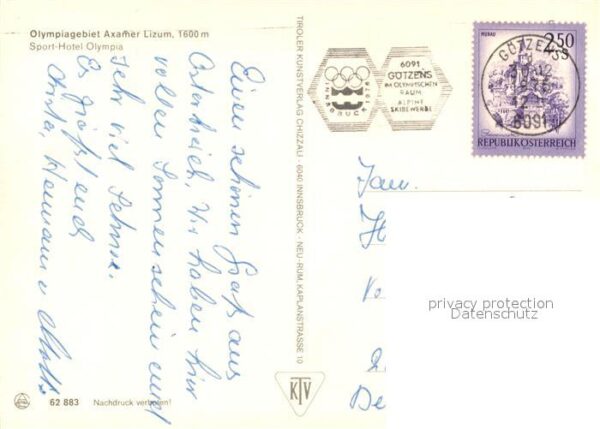 Olympiagebiet Axamer Lizum, 1600 m
Sport-Hotel Olympia
Einen schönen Gruß aus
Österreich. Wir haben hier
vollen Sonnenschein und
sehr viel Schnee.
Es grüßt euch
Christa, Hermann u.
62 883 Nachdruck verboten!
TIROLER KUNSTVERLAG CHIZZALI · 6040 INNSBRUCK - NEU-RUM, KAPLANSTRASSE 10
KTV
INNSBRUCK 1976
6091
GÖTZENS
IM OLYMPISCHEN
RAUM
ALPINE
SKIBEWERBE
MURAU
2.50
S
GÖTZENS
6091
REPUBLIK ÖSTERREICH
Fam.
H
De
privacy protection
Datenschutz